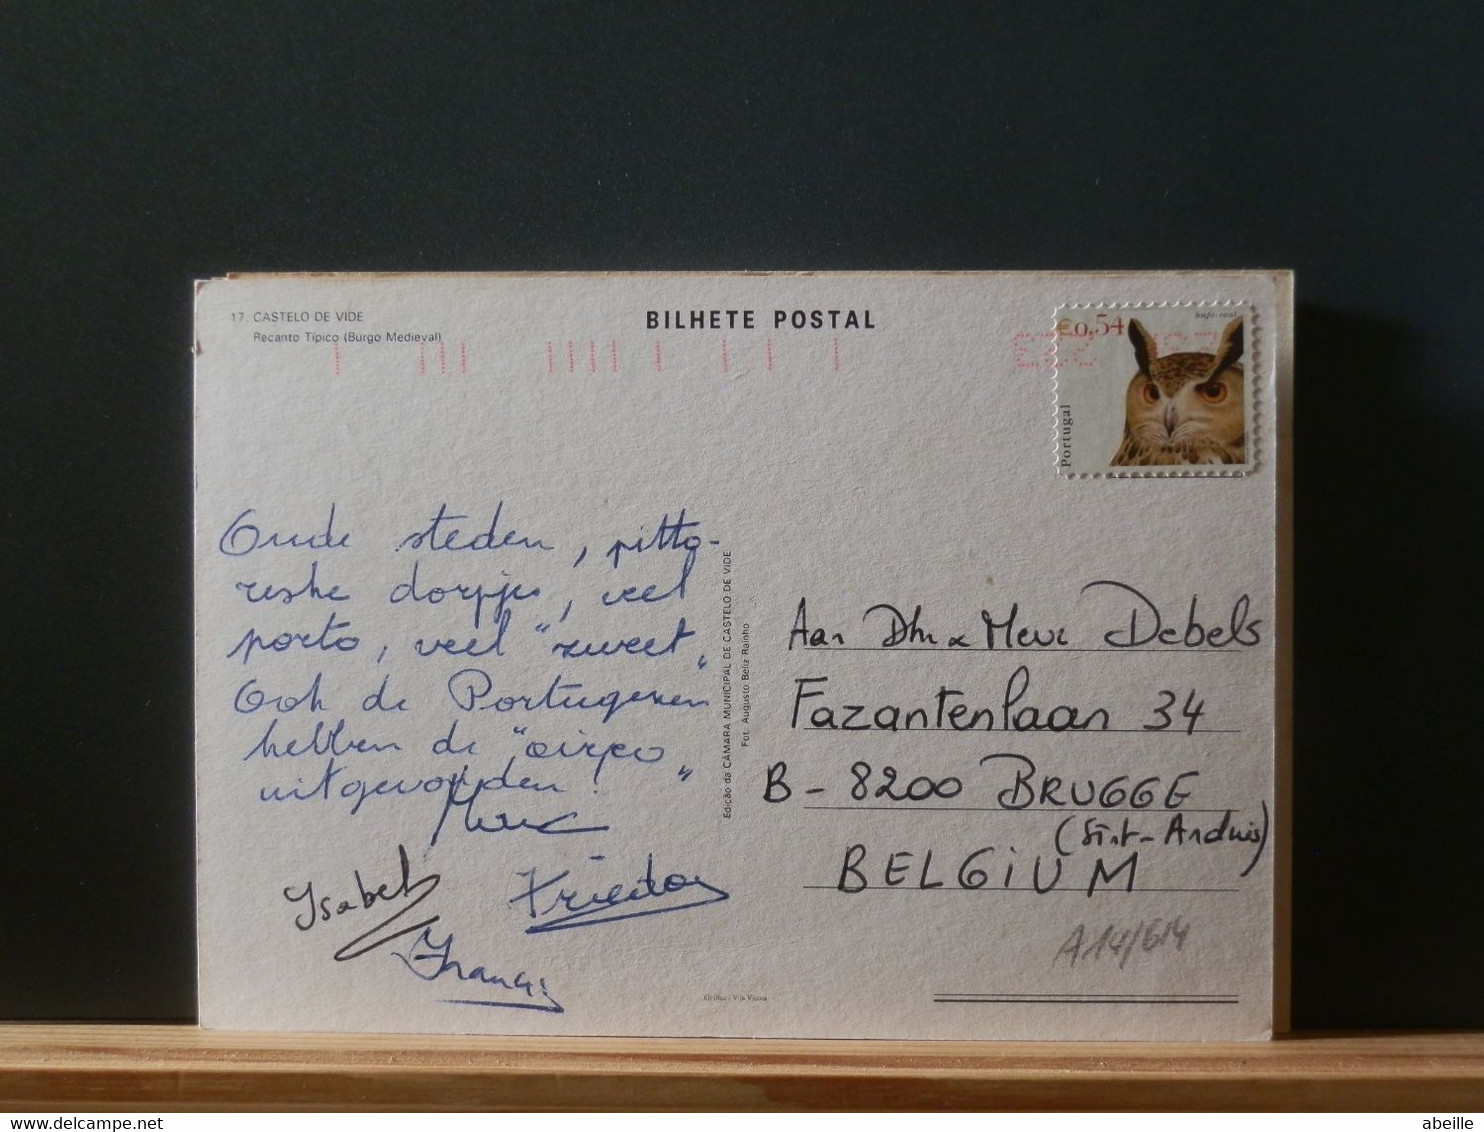 17. CASTELO DE VIDE
Recanto Típico (Burgo Medieval)
BILHETE POSTAL
€0,54
bufo-real
Portugal
Oude steden, pitto-
reske dorpjes, veel
porto, veel "zweet"
Ook de Portugezen
hebben de "airco"
uitgevonden!
Isabel
Francis
Edição da CÂMARA MUNICIPAL DE CASTELO DE VIDE
Fot. Augusto Beliz Rainho
Aan Dhr & Mevr Debels
Fazantenlaan 34
B - 8200 BRUGGE
(Sint-Andries)
BELGIUM
A14/614
abeille